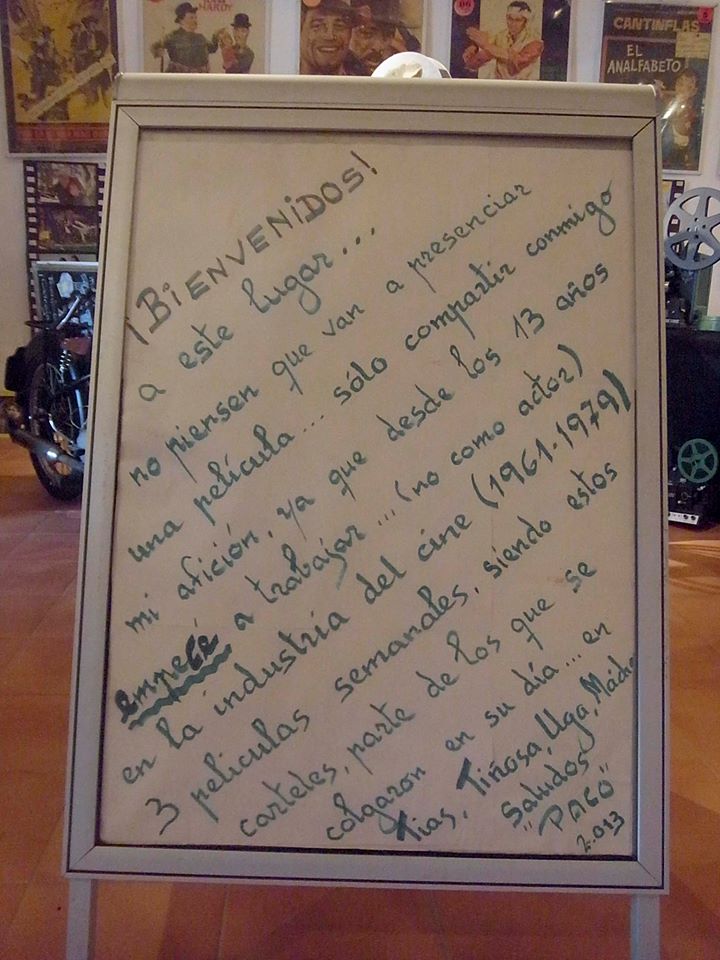 HARDY
CANTINFLAS
EL
ANALFABETO
¡BIENVENIDOS!
a este lugar...
no piensen que van a presenciar
una película... sólo compartir conmigo
mi afición, ya que desde los 13 años
empecé a trabajar...(no como actor)
en la industria del cine (1961-1979)
3 películas semanales, siendo estos
carteles, parte de los que se
colgaron en su día... en
Tías, Tiñosa, Uga, Mácher
Saludos
"PACO"
2.013